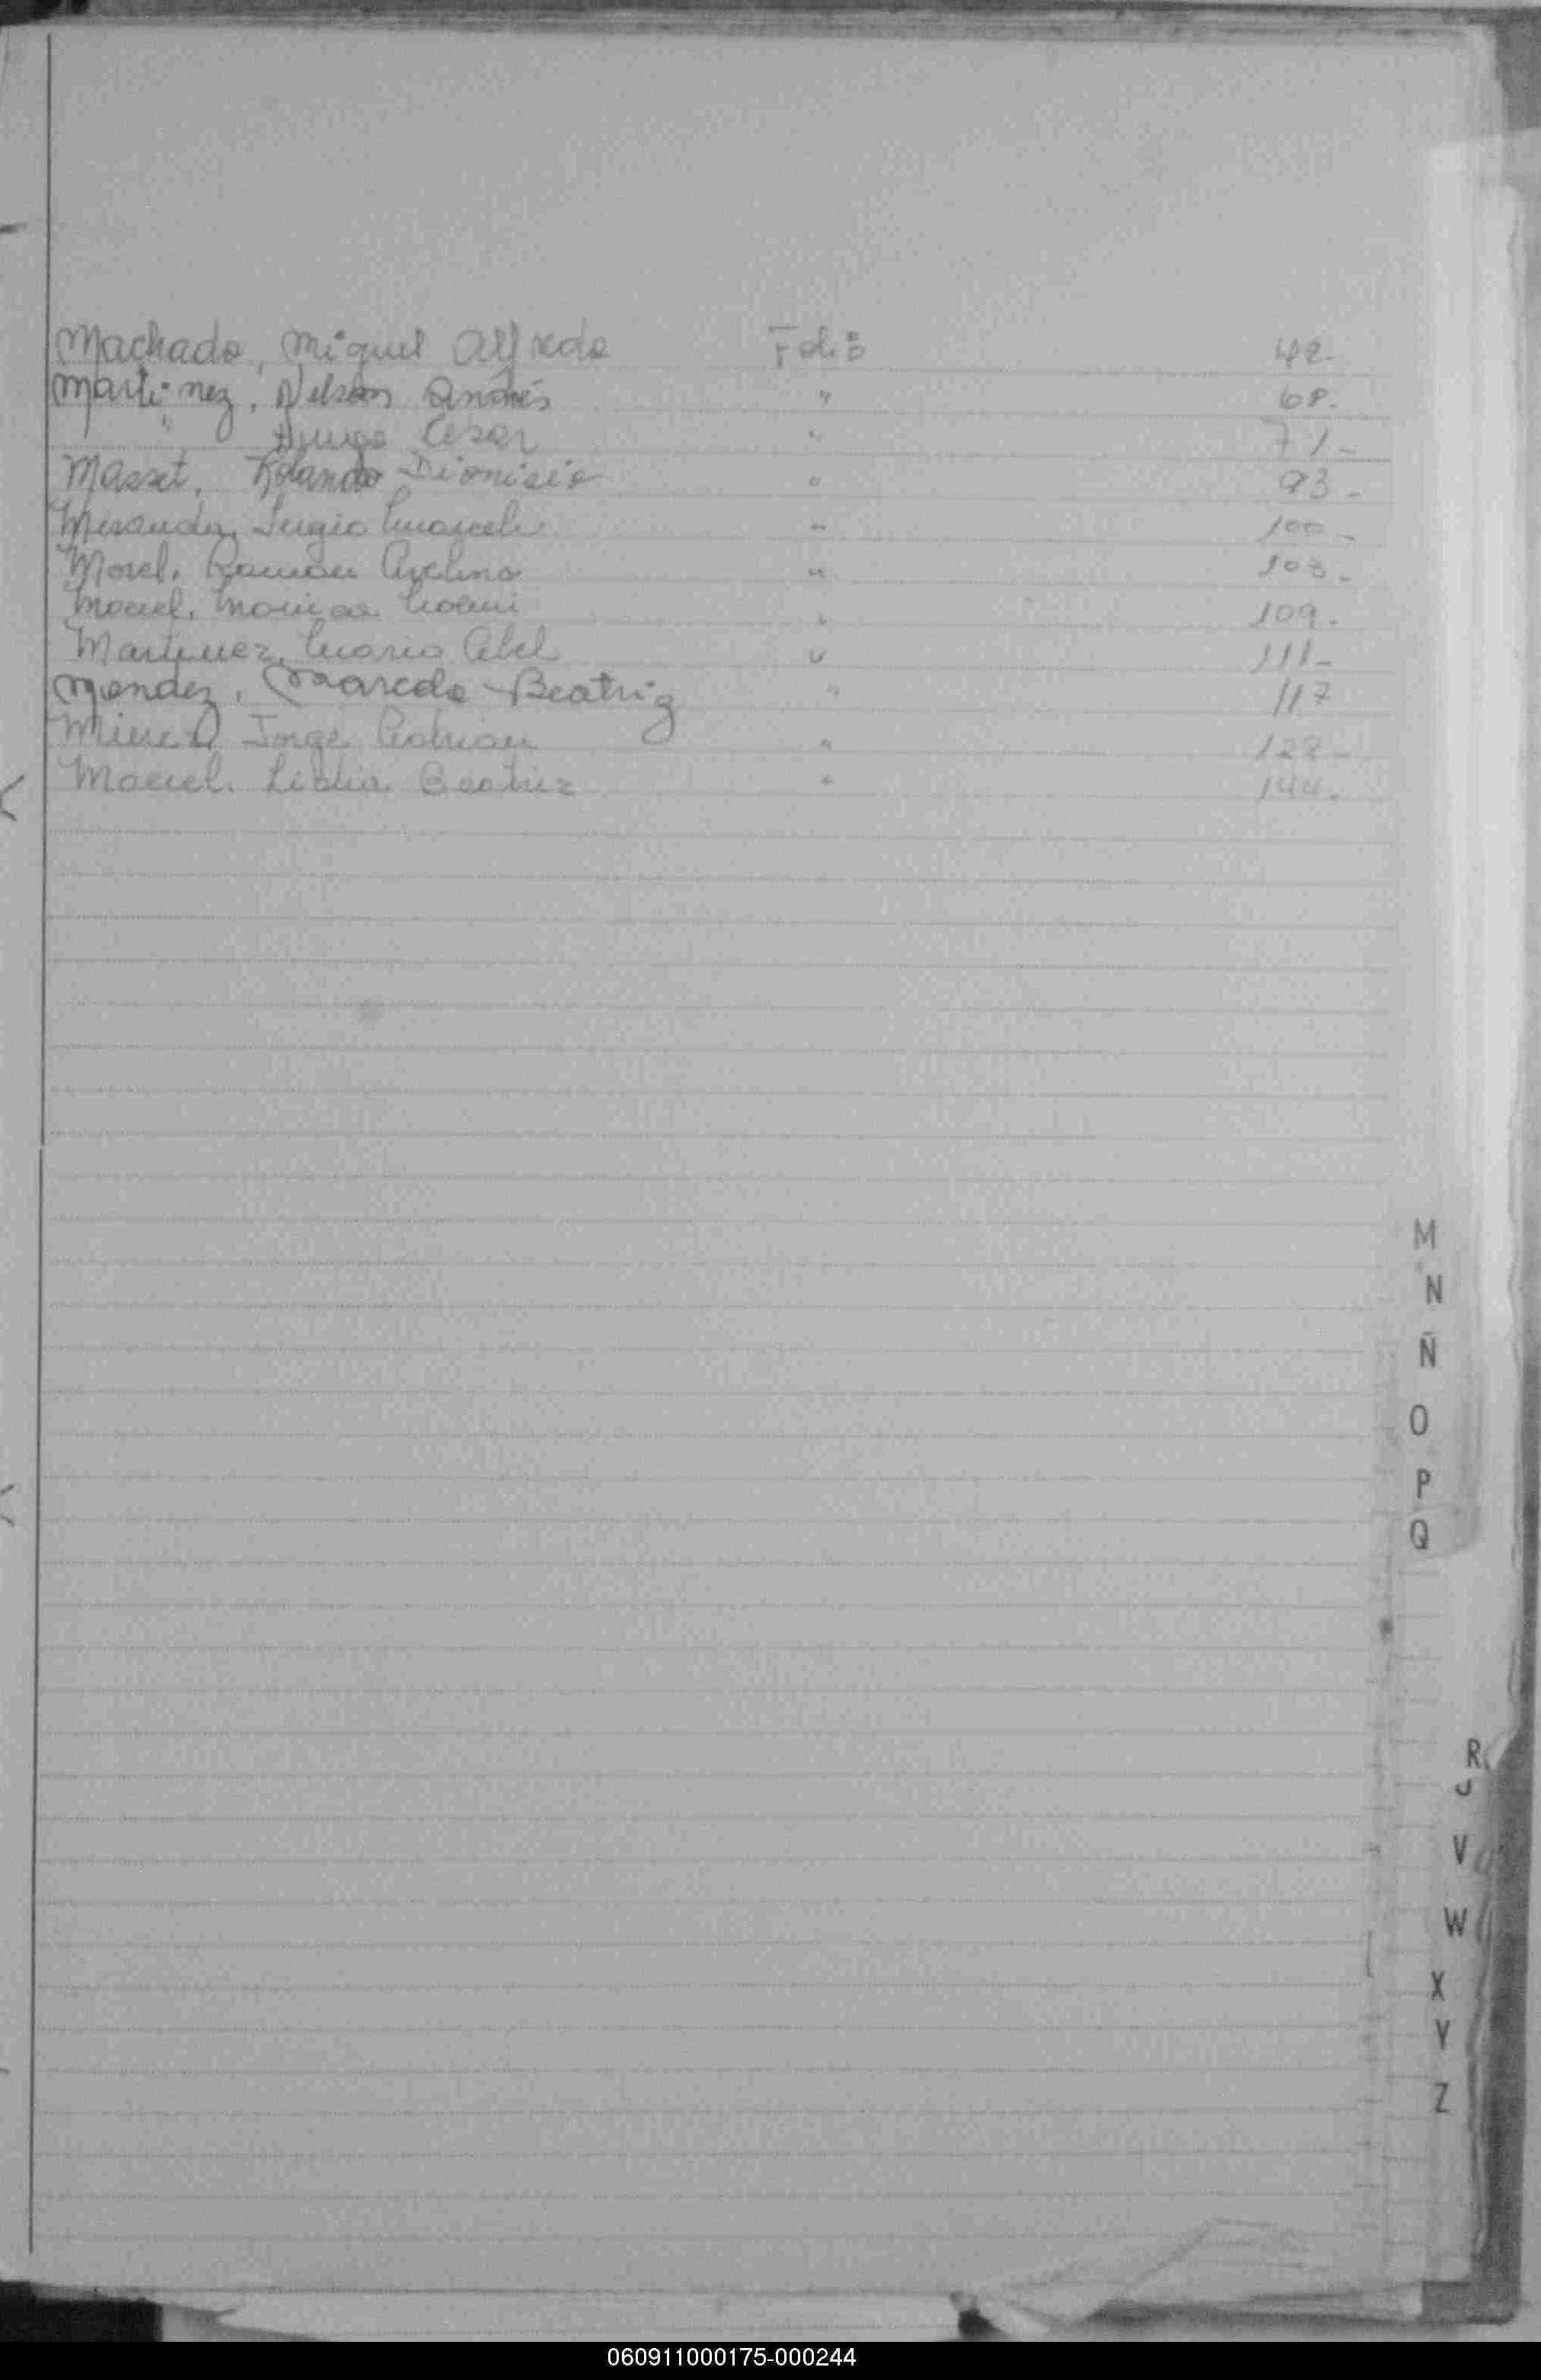 Machado, Miguel Alfredo Folio 42-
Martinez, Nelson Andrés " 68.
" Hugo Cesar " 71-
Masset, Rolando Dionisio " 93-
Miranda, Sergio Marcelo " 100-
Morel, Ramon Avelino " 103-
Maciel, Monica Noemi " 109.
Martinez, Mario Abel " 111-
Mendez, Marcela Beatriz " 117
Jorge Adrian " 128-
Maciel. Lidia Beatriz " 144.
M
N
Ñ
O
P
Q
R
V
W
X
Y
Z
060911000175-000244